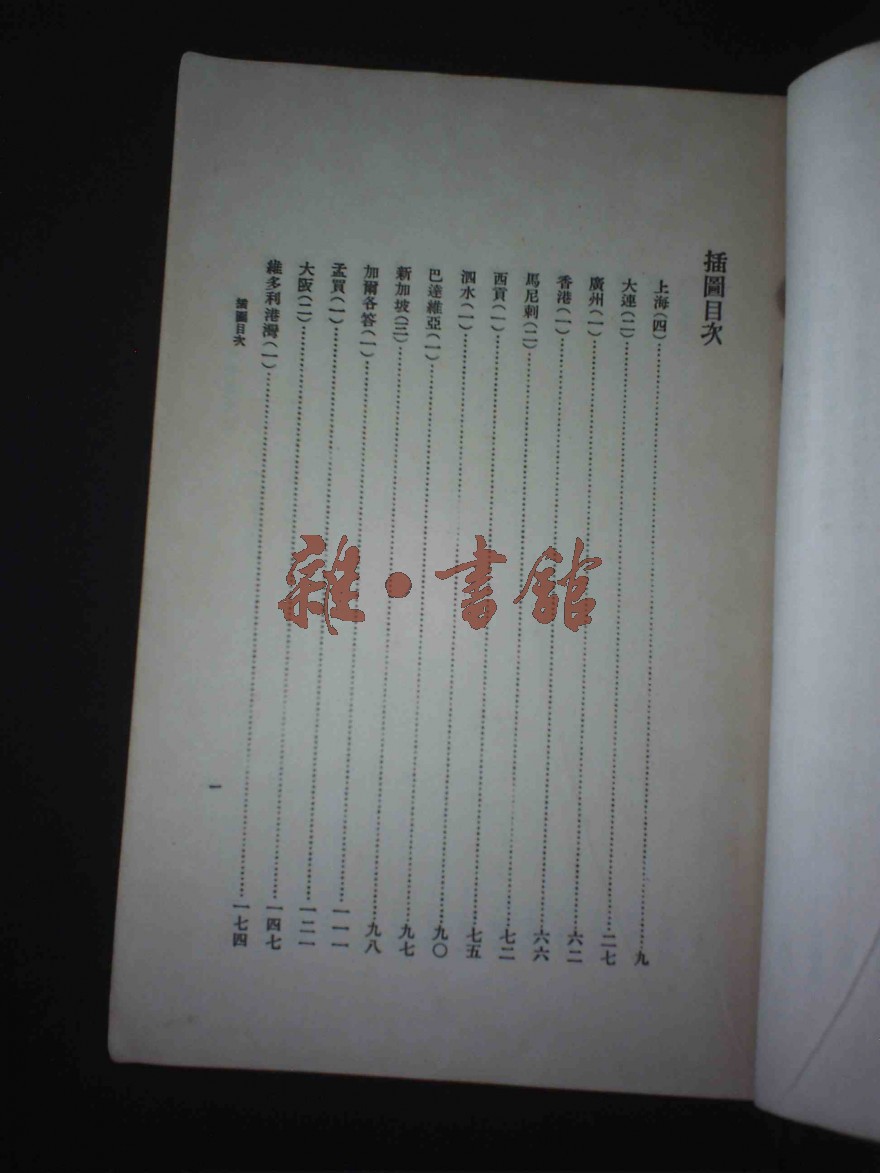 插圖目次
上海(四)……九
大連(二)……二七
廣州(一)……六二
香港(一)……六六
馬尼剌(二)……七二
西貢(一)……七五
泗水(一)……九〇
巴達維亞(一)……九七
新加坡(三)……九八
加爾各答(一)……一一一
孟買(一)……一二一
大阪(二)……一四七
維多利港灣(一)……一七四
插圖目次
一
雜·書館